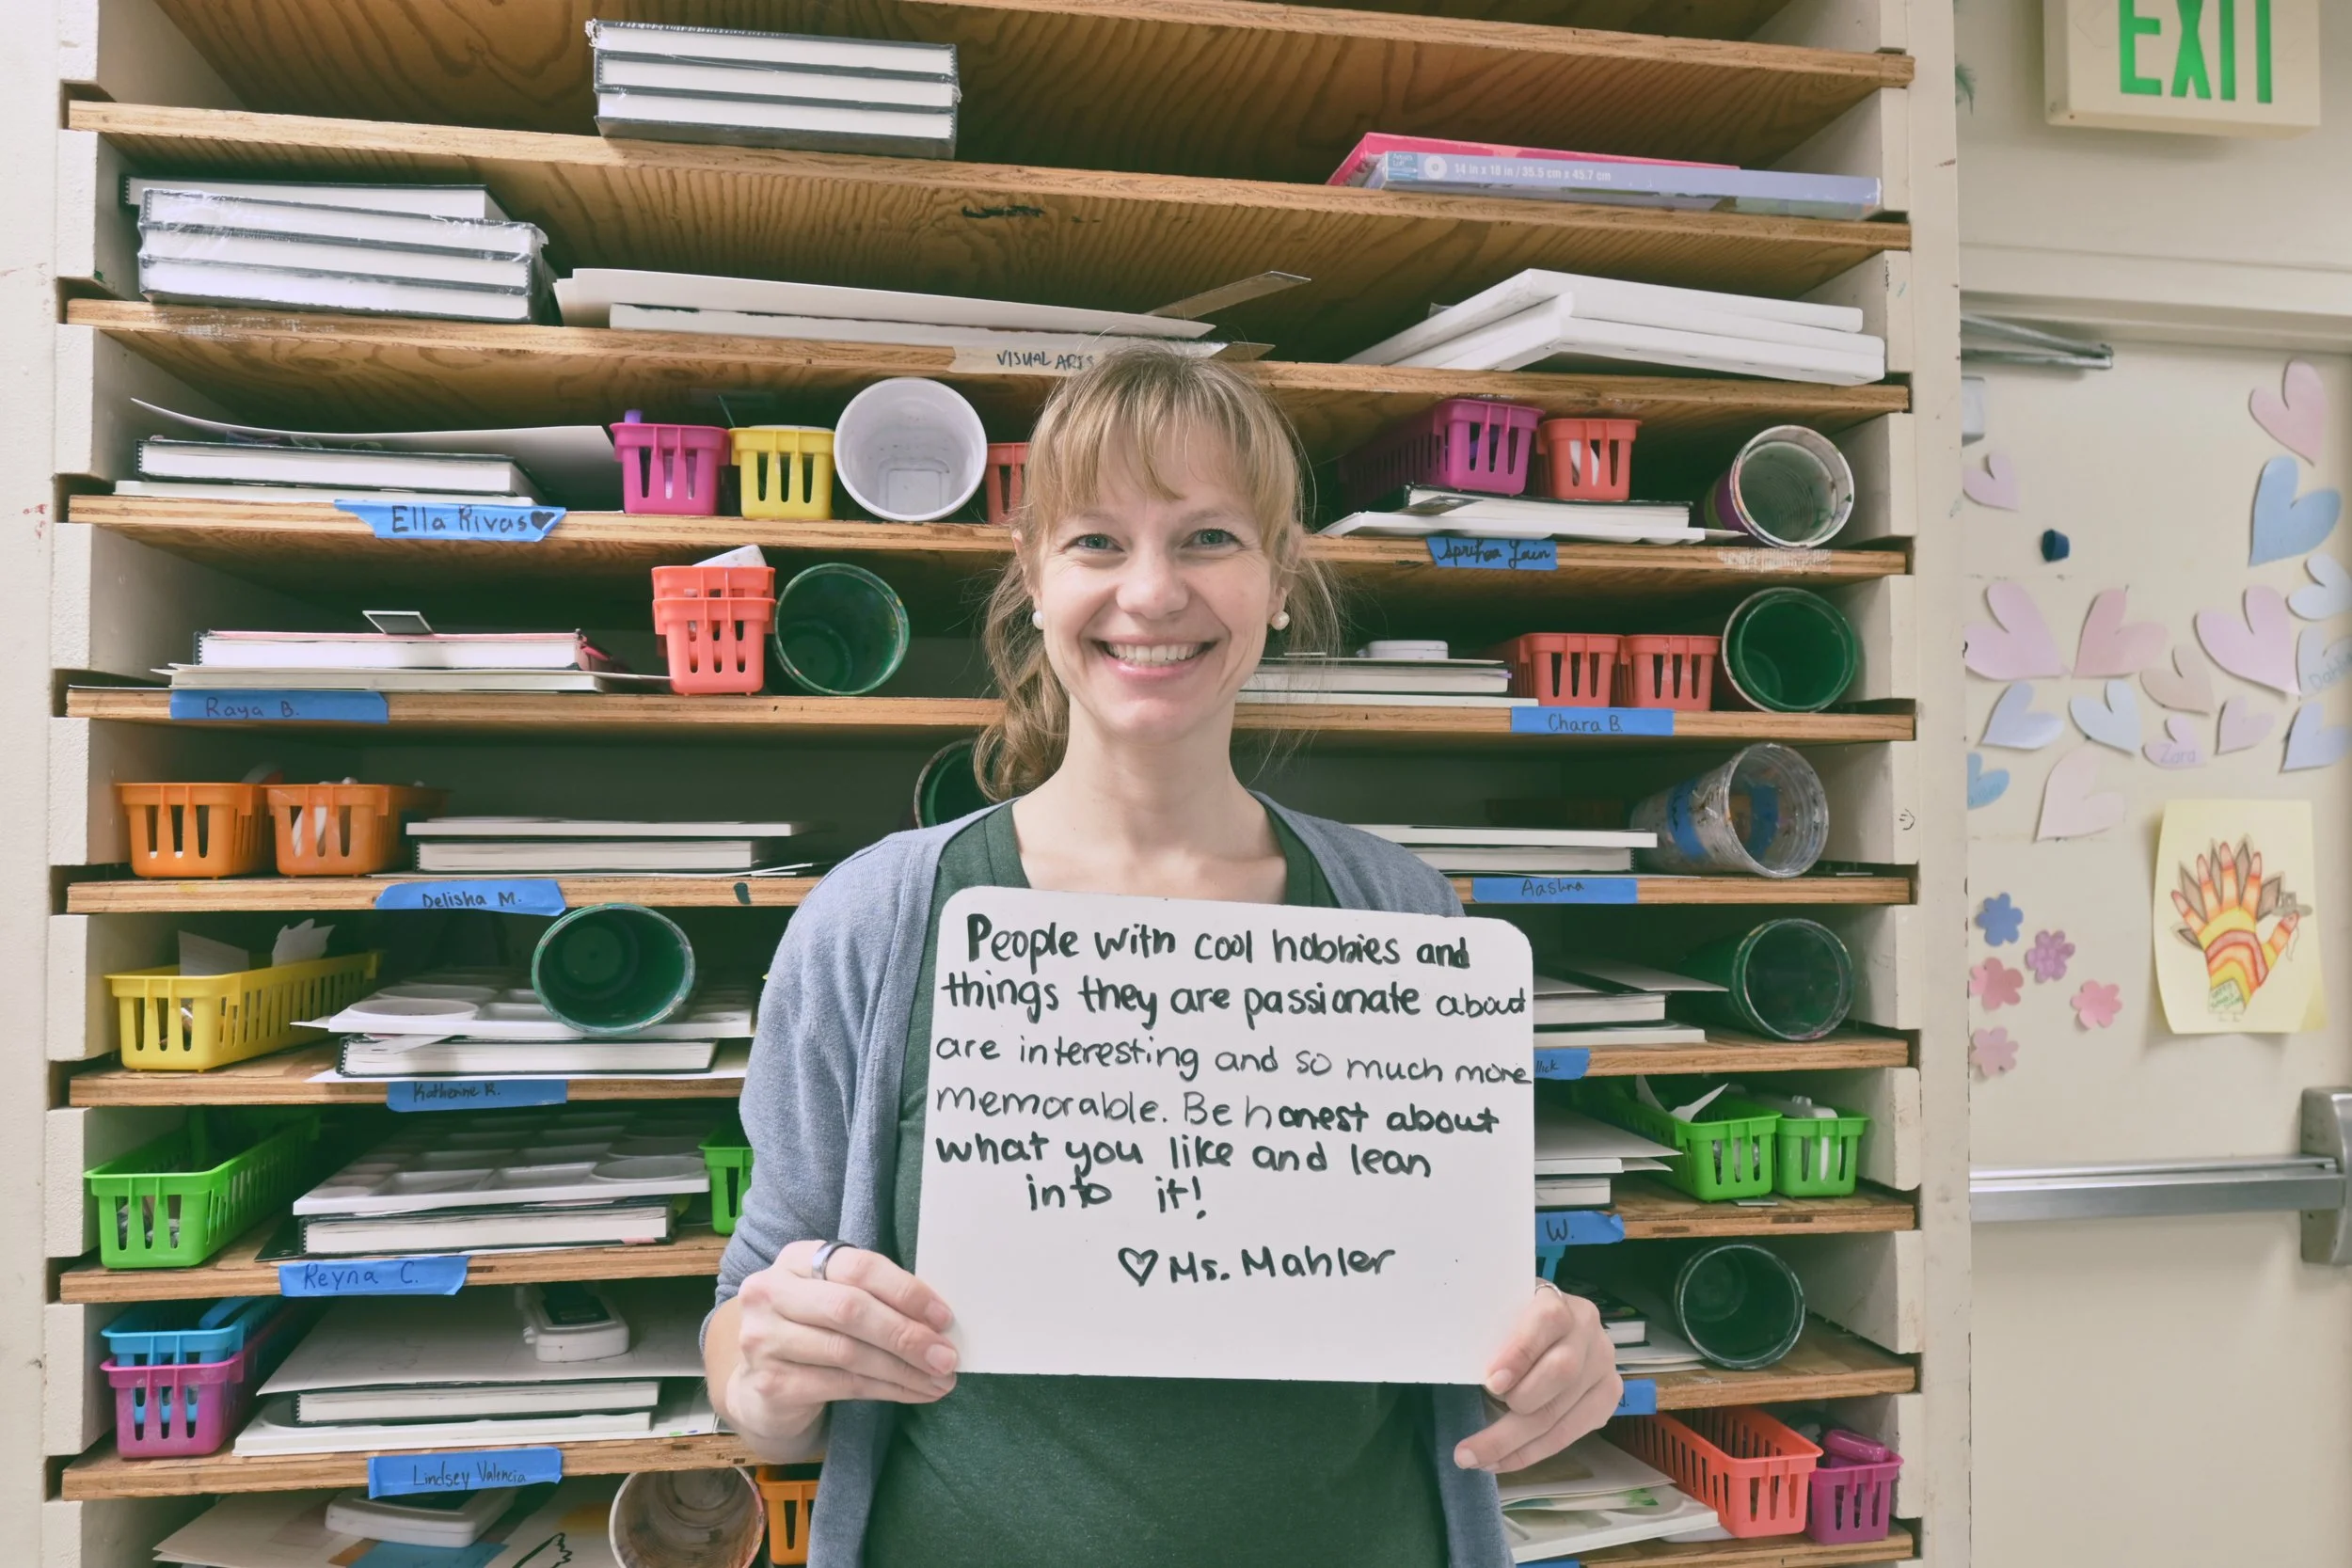 EXIT
14 in x 18 in / 35.5 cm x 45.7 cm
VISUAL ARTS
Ella Rivas♥
Raya B.
Chara B.
Delisha M.
Aashna
Katherine R.
Reyna C.
W.
Lindsey Valencia
Zara
People with cool hobbies and
things they are passionate about
are interesting and so much more
memorable. Be honest about
what you like and lean
into it!
♡ Ms. Mahler